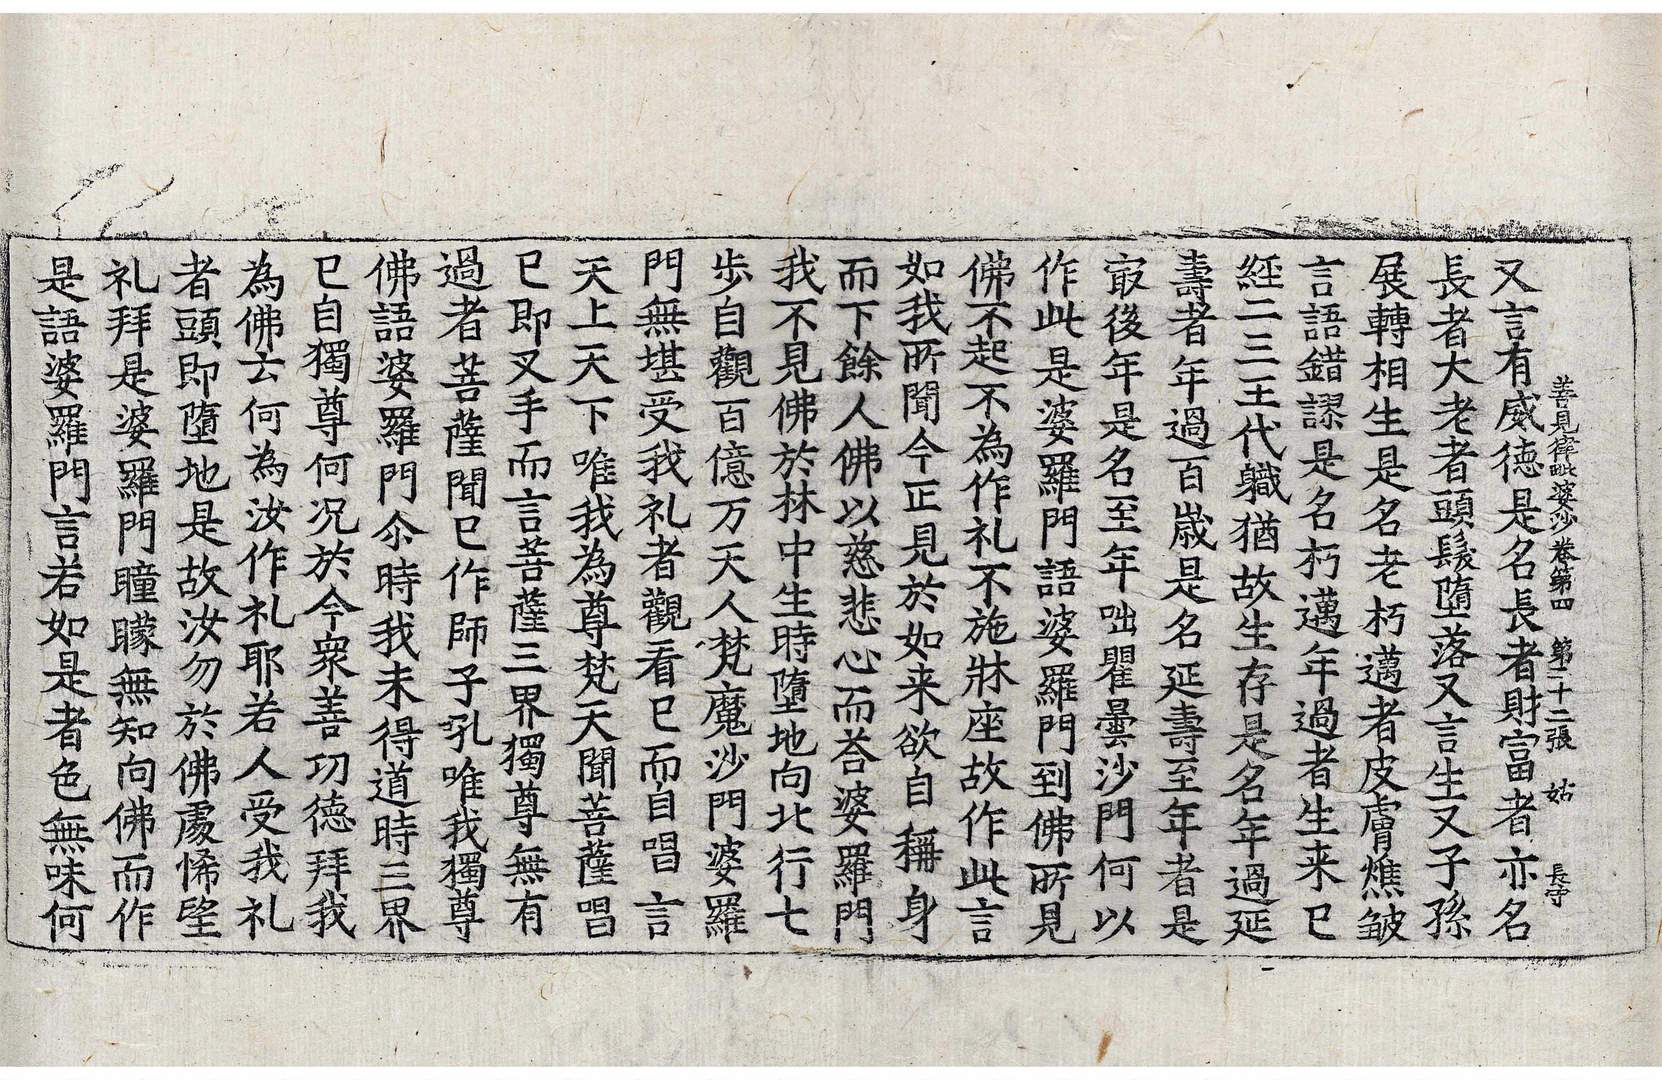 善見律毗婆沙卷第四　第二十二張　姑　長守
又言有威徳是名長者財富者亦名
長者大老者頭髮墮落又言生又子孫
展轉相生是名老朽邁者皮膚燋皺
言語錯謬是名朽邁年過者生来已
經二三王代職猶故生存是名年過延
壽者年過百歲是名延壽至年者是
㝡後年是名至年咄瞿曇沙門何以
作此是婆羅門語婆羅門到佛所見
佛不起不為作礼不施牀座故作此言
如我所聞今正見於如来欲自稱身
而下餘人佛以慈悲心而荅婆羅門
我不見佛於林中生時墮地向北行七
步自觀百億万天人梵魔沙門婆羅
門無堪受我礼者觀看已而自唱言
天上天下唯我為尊梵天聞菩薩唱
已即叉手而言菩薩三界獨尊無有
過者菩薩聞已作師子吼唯我獨尊
佛語婆羅門尒時我未得道時三界
已自獨尊何况於今衆善功德拜我
為佛云何為汝作礼耶若人受我礼
者頭即墮地是故汝勿於佛處悕望
礼拜是婆羅門瞳矇無知向佛而作
是語婆羅門言若如是者色無味何